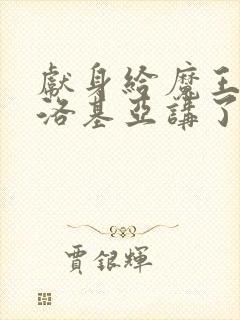 獻身給魔王伊
洛基亞講了什
賈銀輝